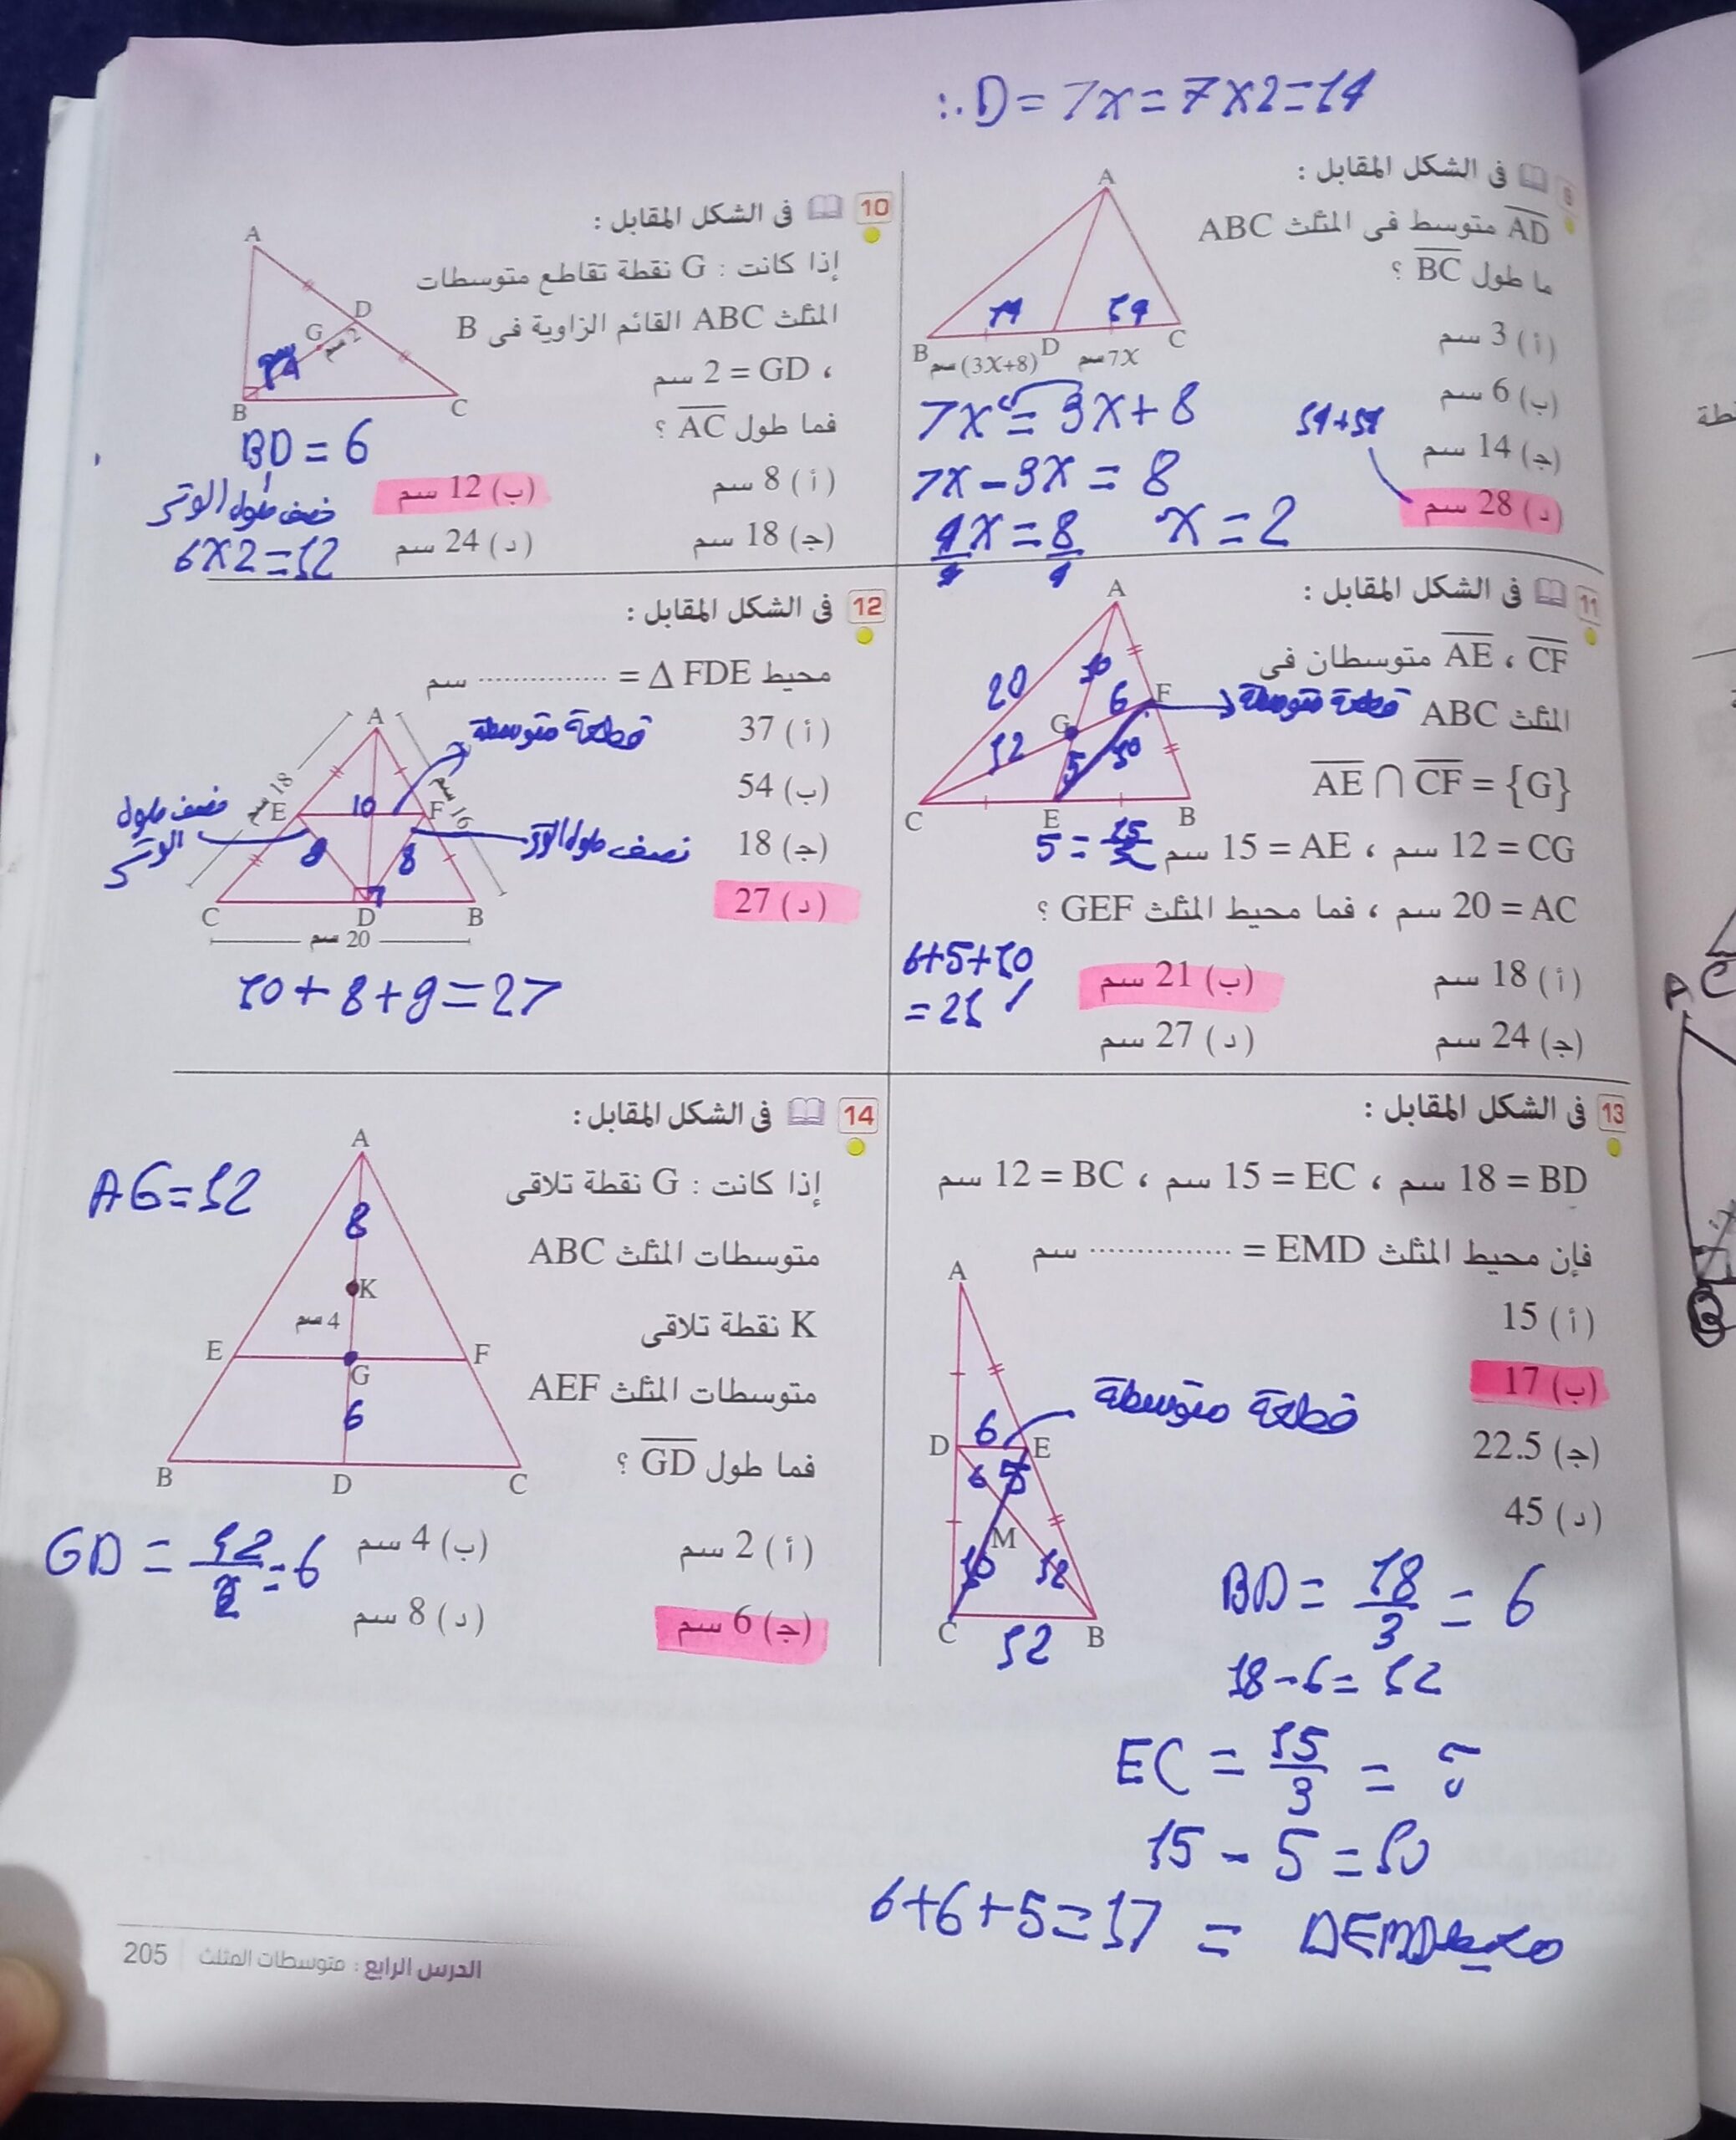 ∴ D = 7x = 7 x 2 = 14
9 فى الشكل المقابل :
AD متوسط فى المثلث ABC
ما طول BC ؟
( أ ) 3 سم
(ب) 6 سم
(جـ) 14 سم
( د ) 28 سم
14+14
A
14
14
B
(3X+8) سم
D
7X سم
C
7x = 3x + 8
7x - 3x = 8
4x = 8
4 4
x = 2
10 فى الشكل المقابل :
إذا كانت : G نقطة تقاطع متوسطات
المثلث ABC القائم الزاوية فى B
، GD = 2 سم
فما طول AC ؟
( أ ) 8 سم
(ب) 12 سم
(جـ) 18 سم
( د ) 24 سم
A
D
G
2 سم
B
C
BD = 6
نصف طول الوتر
6 x 2 = 12
11 فى الشكل المقابل :
CF ، AE متوسطان فى
المثلث ABC
AE ∩ CF = {G}
CG = 12 سم ، AE = 15 سم
AC = 20 سم ، فما محيط المثلث GEF ؟
( أ ) 18 سم
(ب) 21 سم
(جـ) 24 سم
( د ) 27 سم
A
20
10
6
F
قطعة متوسطة
G
12
5
10
C
E
B
6+5+10
= 21
12 فى الشكل المقابل :
محيط Δ FDE = ............... سم
( أ ) 37
(ب) 54
(جـ) 18
( د ) 27
A
قطعة متوسطة
18 سم
16 سم
E
10
F
نصف طول الوتر
نصف طول الوتر
9
8
C
D
B
20 سم
10 + 8 + 9 = 27
13 فى الشكل المقابل :
BD = 18 سم ، EC = 15 سم ، BC = 12 سم
فإن محيط المثلث EMD = ............... سم
( أ ) 15
(ب) 17
(جـ) 22.5
( د ) 45
A
قطعة متوسطة
6
D
E
6
5
M
10
12
C
B
12
BD = 18/3 = 6
18 - 6 = 12
EC = 15/3 = 5
15 - 5 = 10
6+6+5=17 = محيط ΔEMD
14 فى الشكل المقابل :
إذا كانت : G نقطة تلاقى
متوسطات المثلث ABC
K نقطة تلاقى
متوسطات المثلث AEF
فما طول GD ؟
( أ ) 2 سم
(ب) 4 سم
(جـ) 6 سم
( د ) 8 سم
AG = 12
A
8
K
4 سم
E
F
G
6
B
D
C
GD = 12/2 = 6
الدرس الرابع : متوسطات المثلث | 205